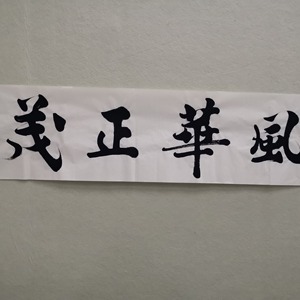 風華正茂